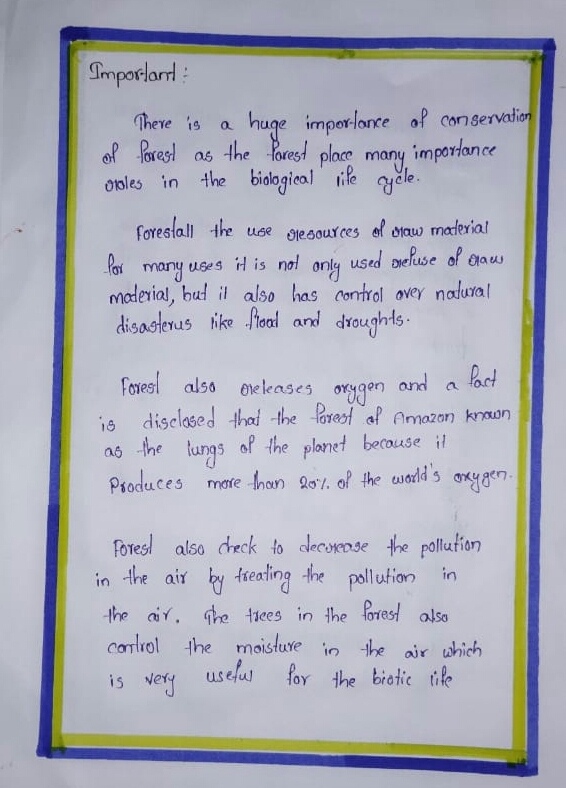 Important :
There is a huge importance of conservation
of forest as the forest place many importance
roles in the biological life cycle.
Forestall the use resources of raw material
for many uses it is not only used refuse of raw
material, but it also has control over natural
disasterus like flood and droughts.
Forest also releases oxygen and a fact
is disclosed that the forest of Amazon known
as the lungs of the planet because it
Produces more than 20%. of the world's oxygen.
Forest also check to decrease the pollution
in the air by treating the pollution in
the air. The trees in the forest also
control the moisture in the air which
is very useful for the biotic life